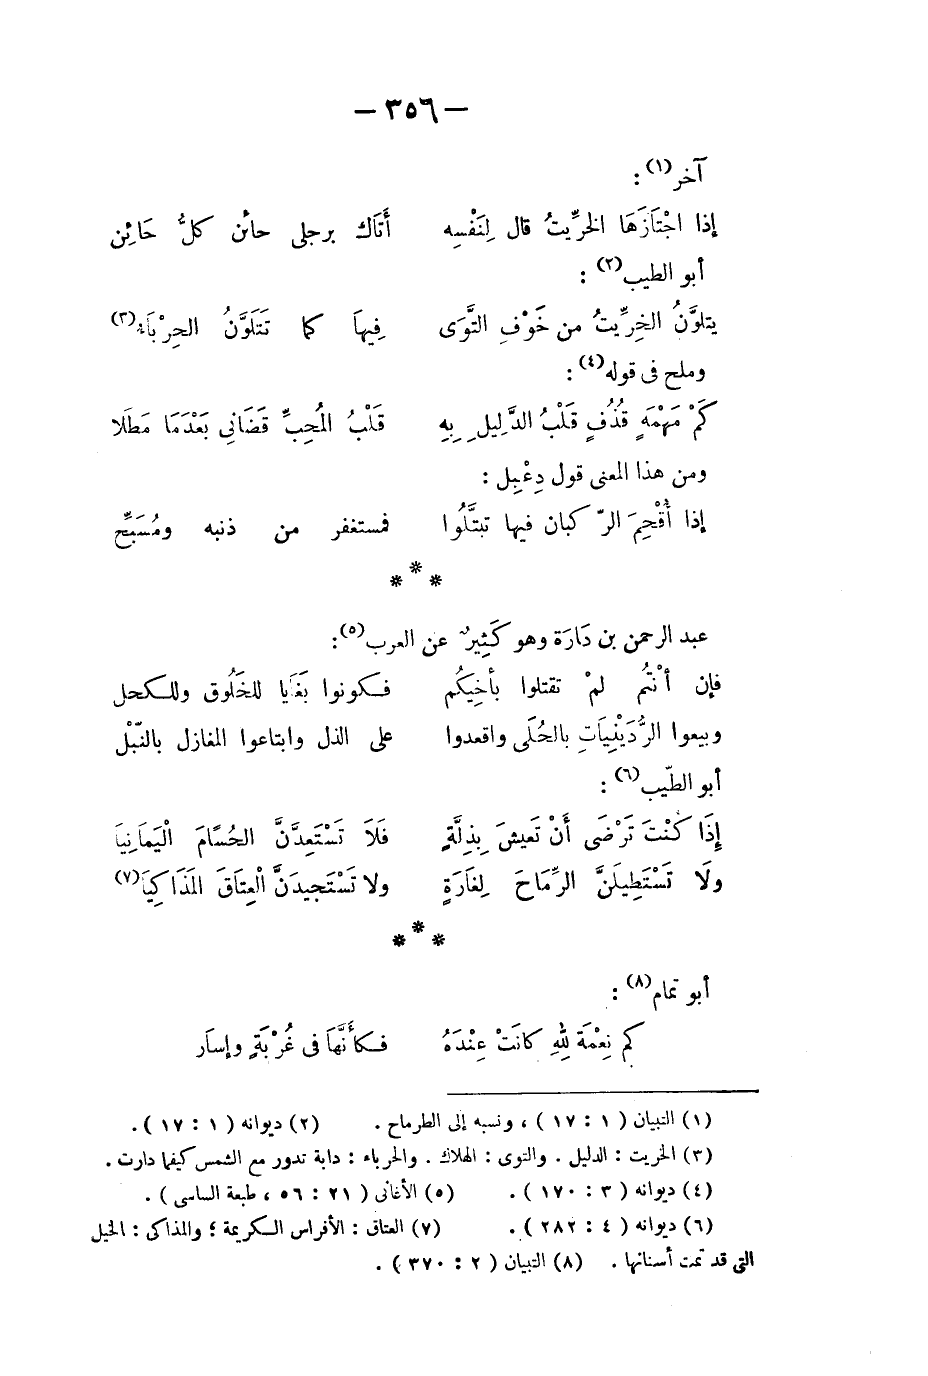 — ٣٥٦ —
آخر(١) :
إذا اجْتَازَهَا الخرِّيتُ قال لِنَفْسِه أَتَاك برجلى حائن كلُّ حَائِن
أبو الطيب(٢) :
يتلوَّنُ الخِرِّيتُ من خَوْفِ التَّوَى فِيهاَ كما تَتَلَوَّنُ الحِرْبَاء(٣)
وملح فى قوله(٤) :
كَمْ مَهْمَهٍ قُذُفٍ قَلْبُ الدَّلِيلِ بِهِ قَلْبُ الْمُحِبِّ قَضَانِى بَعْدَمَا مَطَلا
ومن هذا المعنى قول دِعْبِل :
إذا أُقْحِمَ الرّكبان فيها تبتَّلُوا فمستغفر من ذنبه ومُسَبِّح
* * *
عبد الرحمن بن دَارَة وهو كَثِيرٌ عن العرب(٥) :
فإن أَنْتُم لمْ تقتلوا بأَخِيكُم فكونوا بَغَايا للخَلُوق وللكحل
وبيعوا الرُّدَيْنِيَاتِ بالحُلَى واقعدوا على الذل وابتاعوا المغازل بالنّبْل
أبو الطّيب(٦) :
إِذَا كُنْتَ تَرْضَى أَنْ تَعيشَ بِذِلَّةٍ فَلاَ تَسْتَعِدَّنَّ الحُسَامَ الْيَمَانِيَا
ولَا تَسْتَطِيلَنَّ الرِّمَاحَ لِغَارَةٍ ولا تَسْتَجيدَنَّ الْعِتَاقَ الْمَذَاكِيَا(٧)
* * *
أبو تمام(٨) :
كم نِعْمَة لِلهِ كانَتْ عِنْدَهُ فكأَنَّهَا فى غُرْبَةٍ وإسَار
(١) التبيان ( ١ : ١٧ ) ، ونسبه إلى الطرماح . (٢) ديوانه ( ١ : ١٧ ) .
(٣) الخريت : الدليل . والتوى : الهلاك . والحرباء : دابة تدور مع الشمس كيفما دارت .
(٤) ديوانه ( ٣ : ١٧٠ ) . (٥) الأغانى ( ٢١ : ٥٦ ، طبعة الساسى ) .
(٦) ديوانه ( ٤ : ٢٨٢ ) . (٧) العتاق : الأفراس الكريمة ؛ والمذاكى : الخيل
التى قد تمت أسنانها . (٨) التبيان ( ٢ : ٣٧٠ ) .